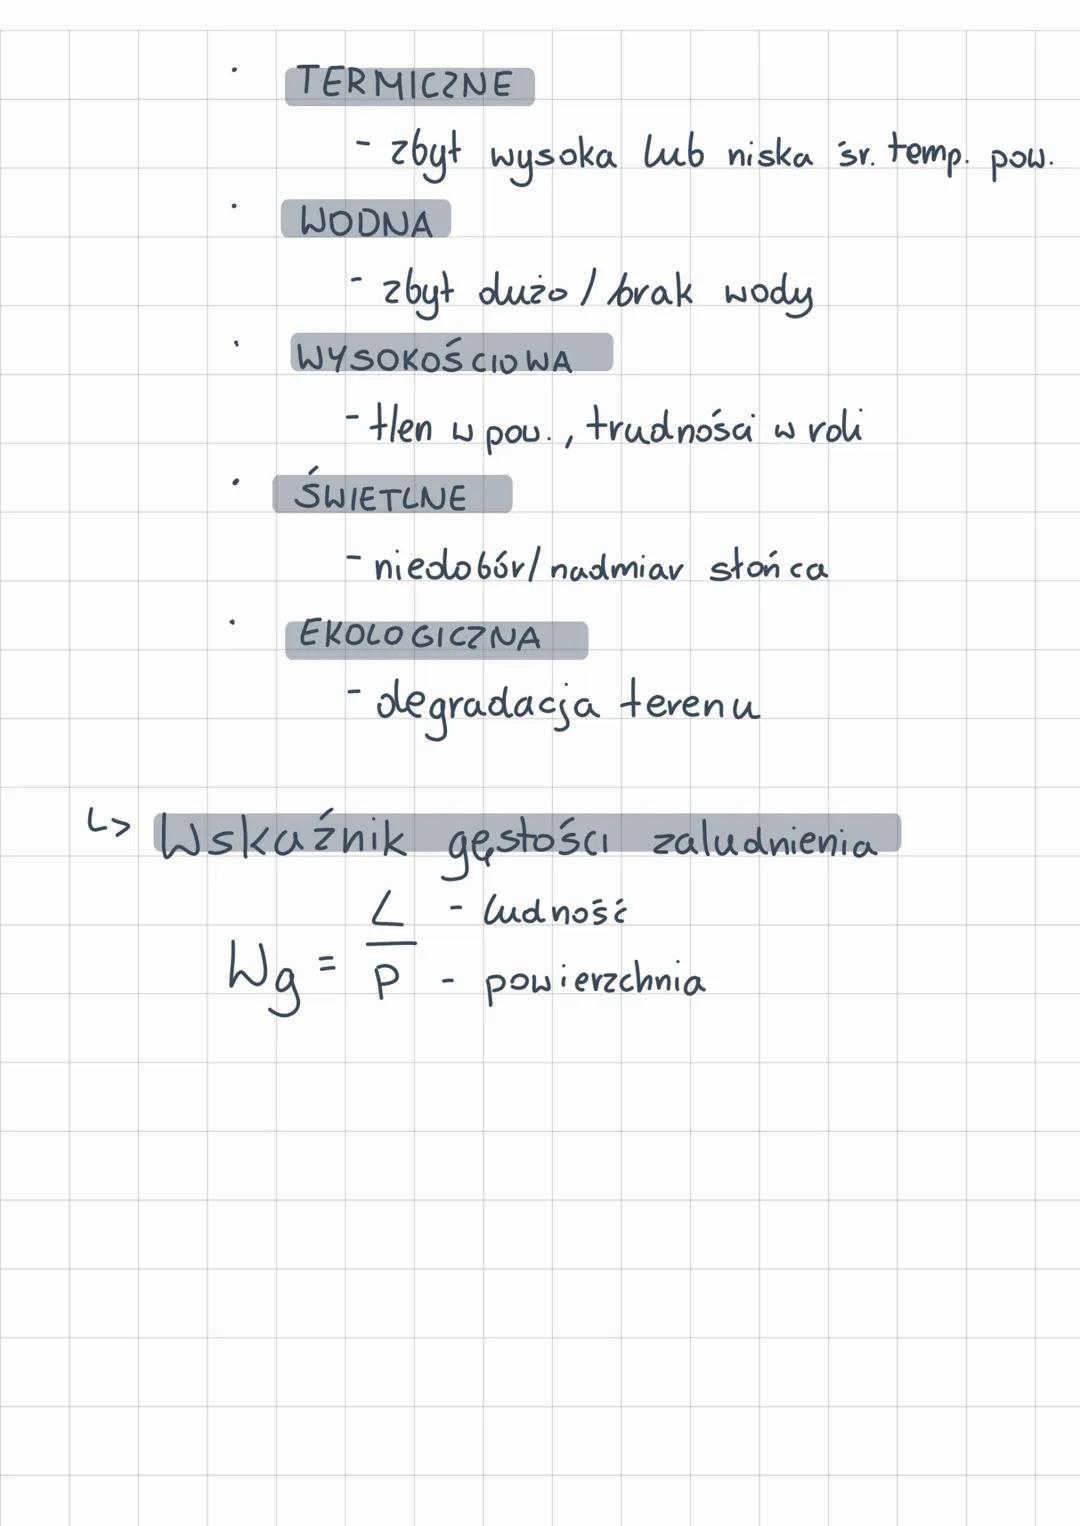 · TERMICZNE
- zbyt wysoka lub niska śr. temp. pow.
· WODNA
- zbyt dużo / brak wody
· WYSOKOŚCIOWA
- tlen w pow., trudności w roli
· ŚWIETLNE
- niedobór/nadmiar słońca
· EKOLOGICZNA
- degradacja terenu
↳ Wskaźnik gęstości zaludnienia
L - ludność
Wg = ―
P - powierzchnia